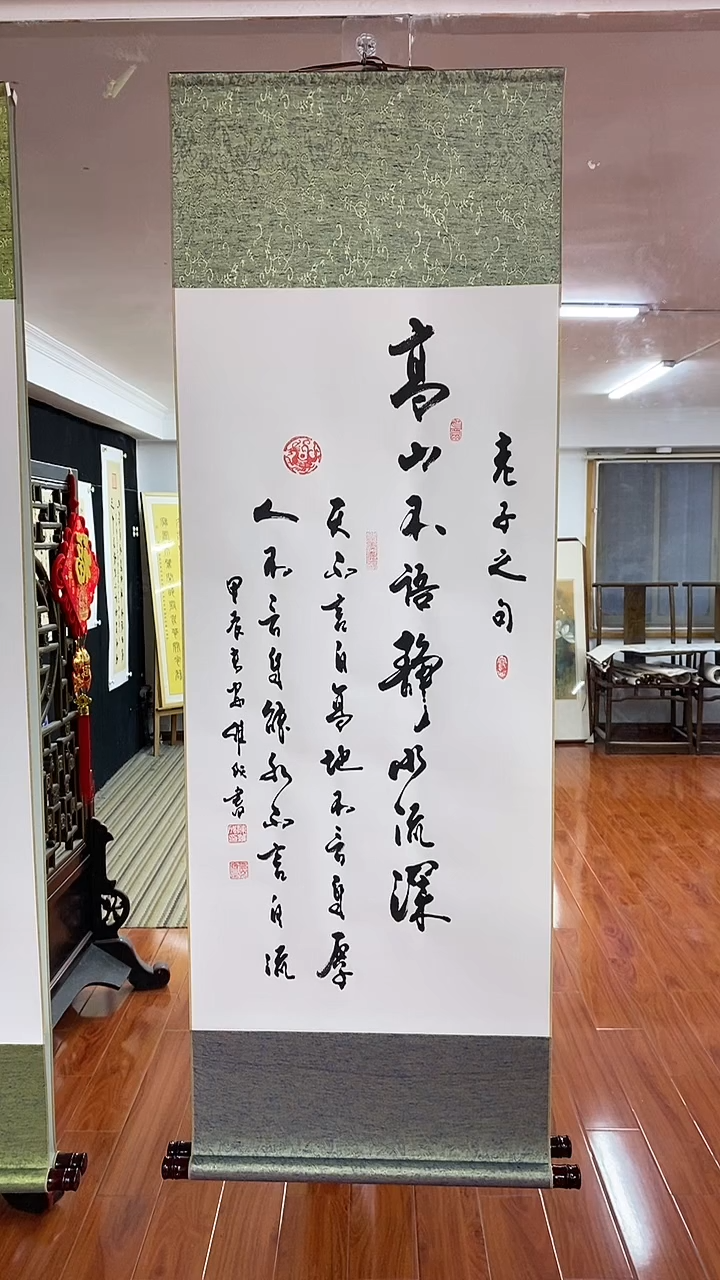 老子之句
高山不语静水流深
天不言自高地不言自厚
人不言自能水不言自流
甲辰春
书